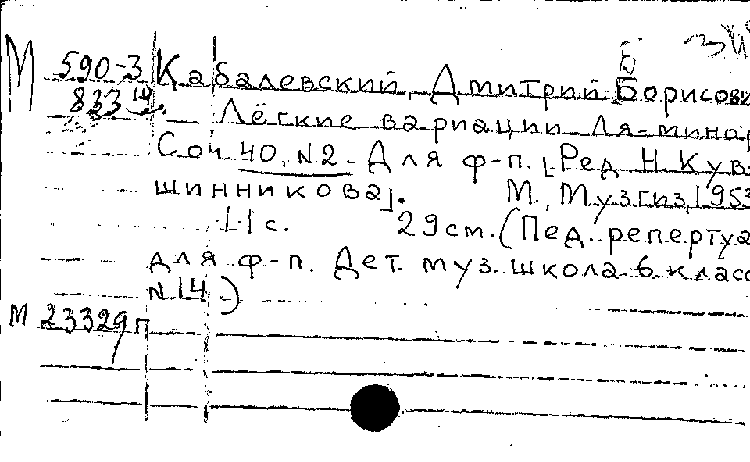 М 590-3 Кабалевский, Дмитрий Борисови
833 Лёгкие вариации ля-минор
Соч 40, N2 - Для ф-п. [Ред Н. Кув-
шинникова].     М., Музгиз, 1953
11 с.     29 см. (Пед. репертуа
для ф-п. Дет. муз. школа 6 класс
N 14.)
М 23329 п